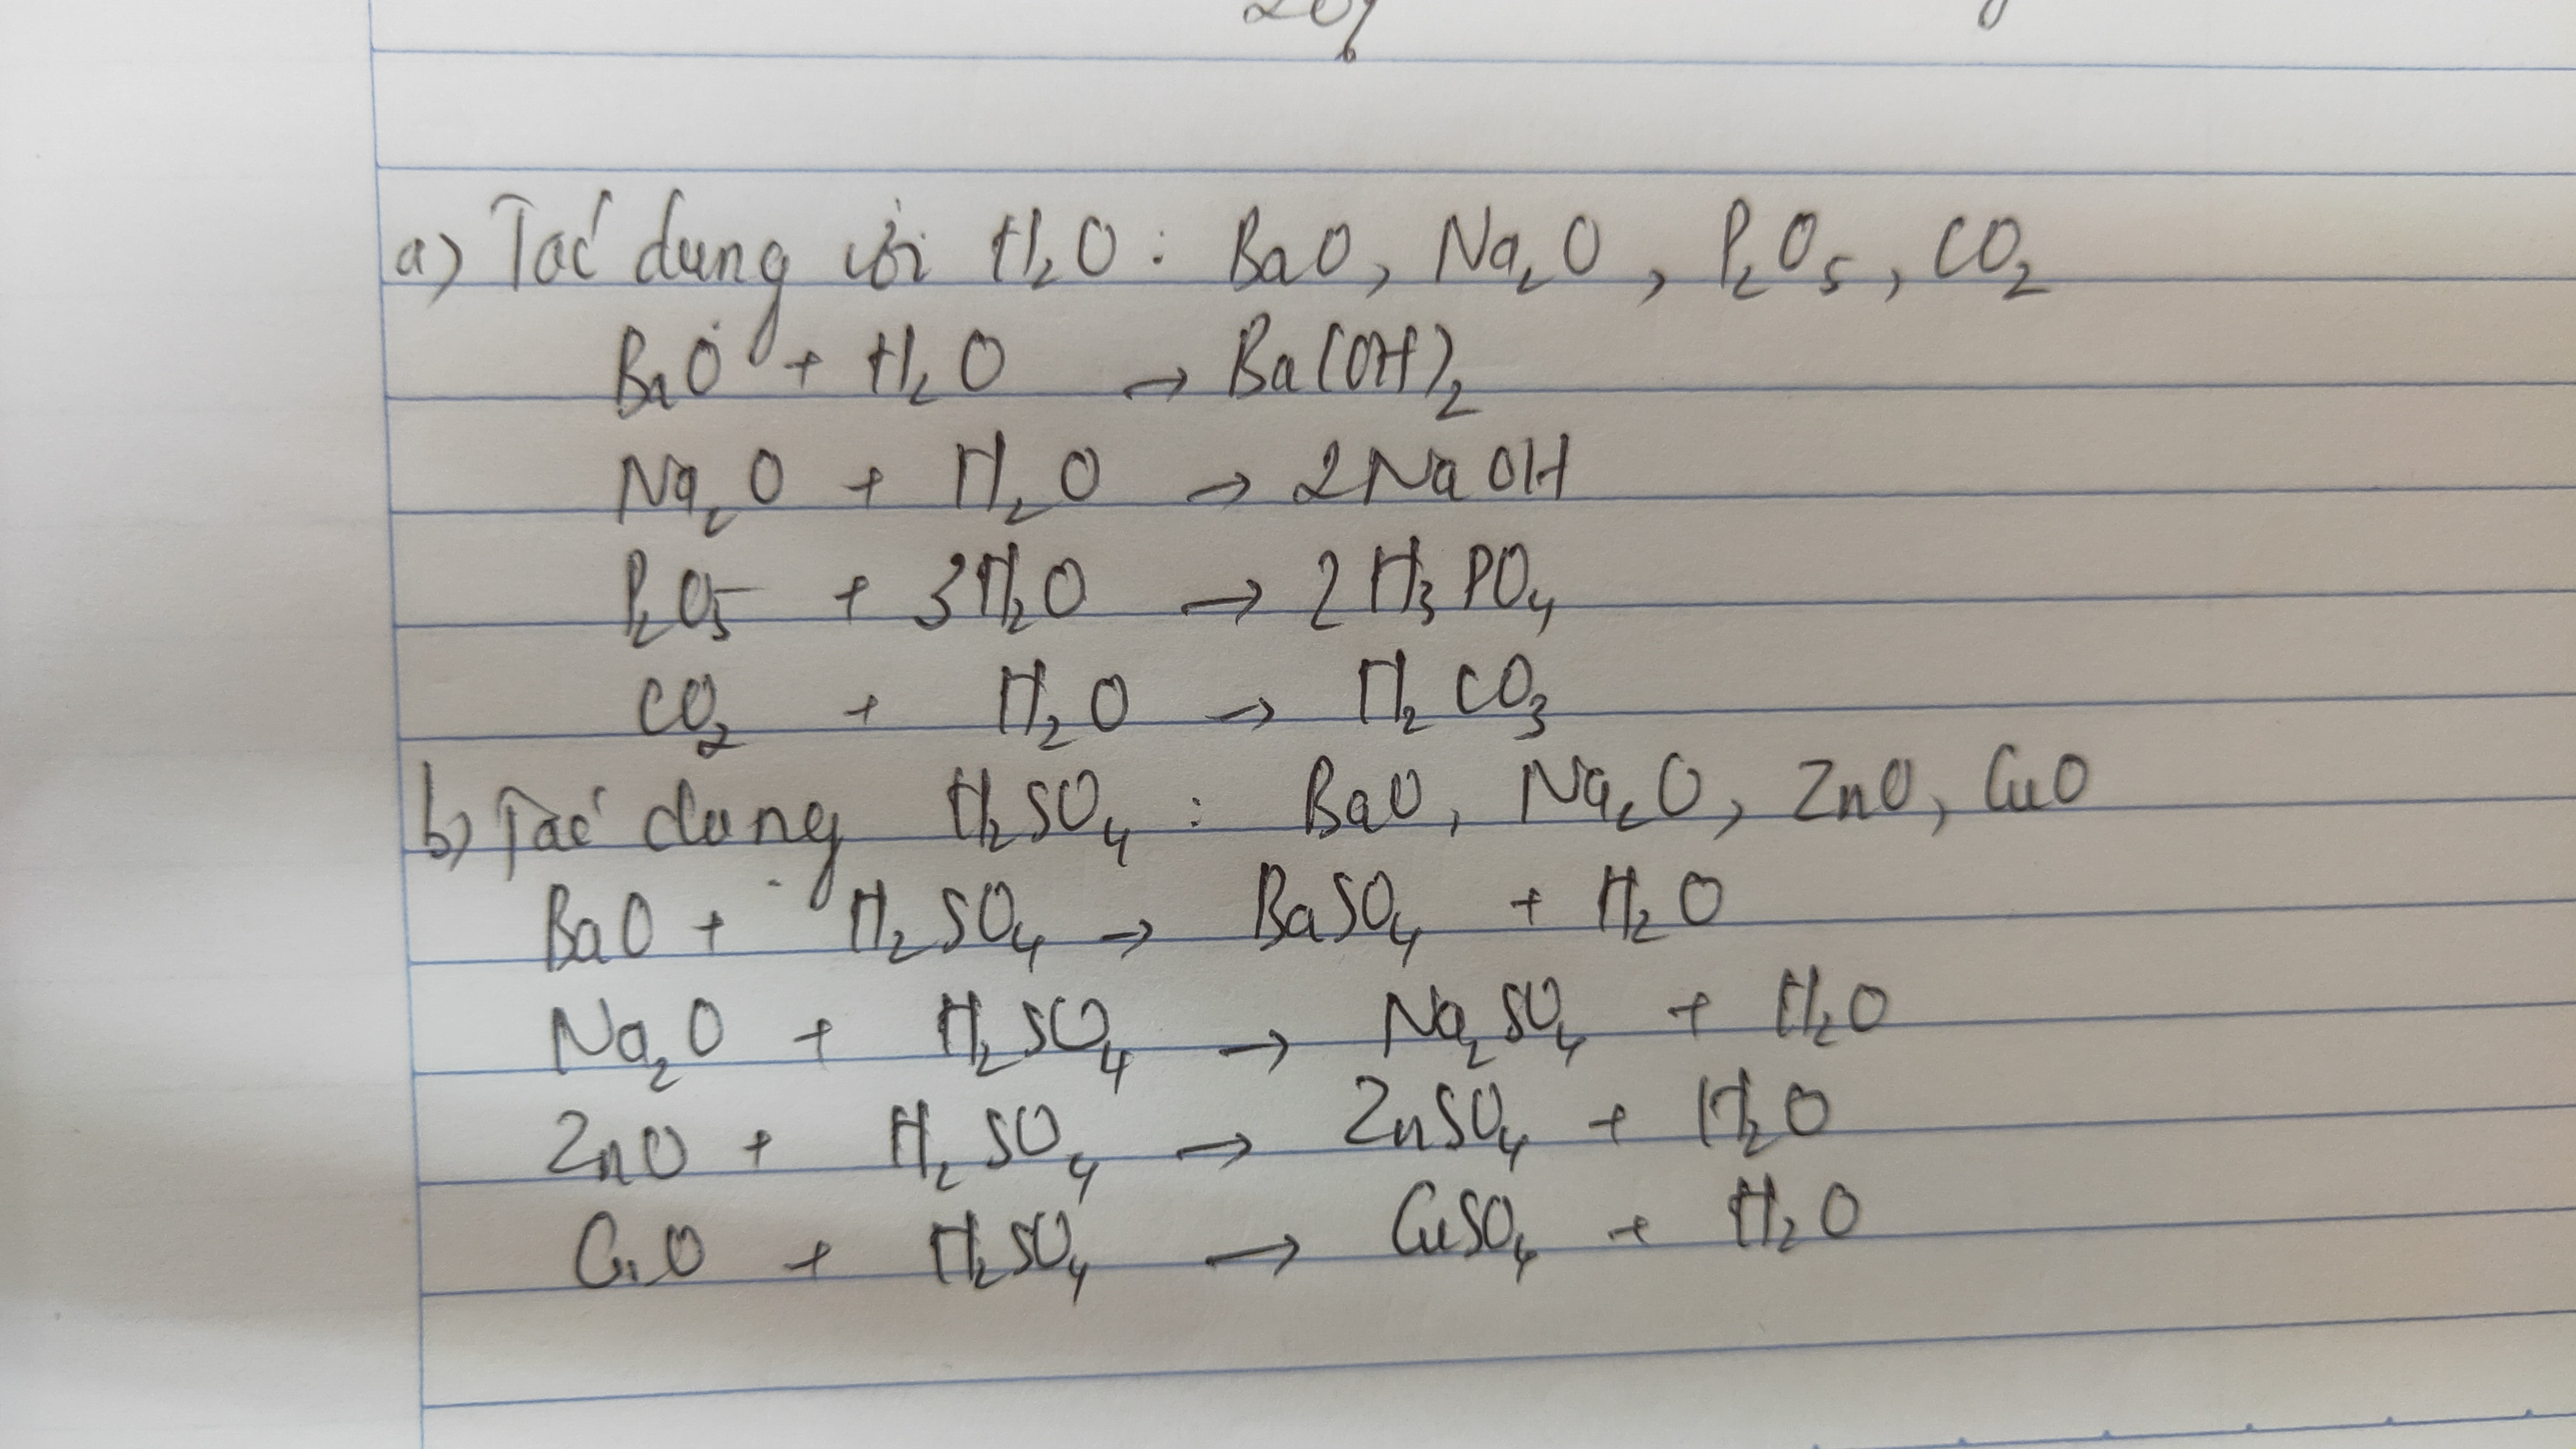 a) Tác dụng với H₂O : BaO, Na₂O, P₂O₅, CO₂
BaO + H₂O → Ba(OH)₂
Na₂O + H₂O → 2NaOH
P₂O₅ + 3H₂O → 2H₃PO₄
CO₂ + H₂O → H₂CO₃
b) Tác dụng H₂SO₄ : BaO, Na₂O, ZnO, CuO
BaO + H₂SO₄ → BaSO₄ + H₂O
Na₂O + H₂SO₄ → Na₂SO₄ + H₂O
ZnO + H₂SO₄ → ZnSO₄ + H₂O
CuO + H₂SO₄ → CuSO₄ + H₂O